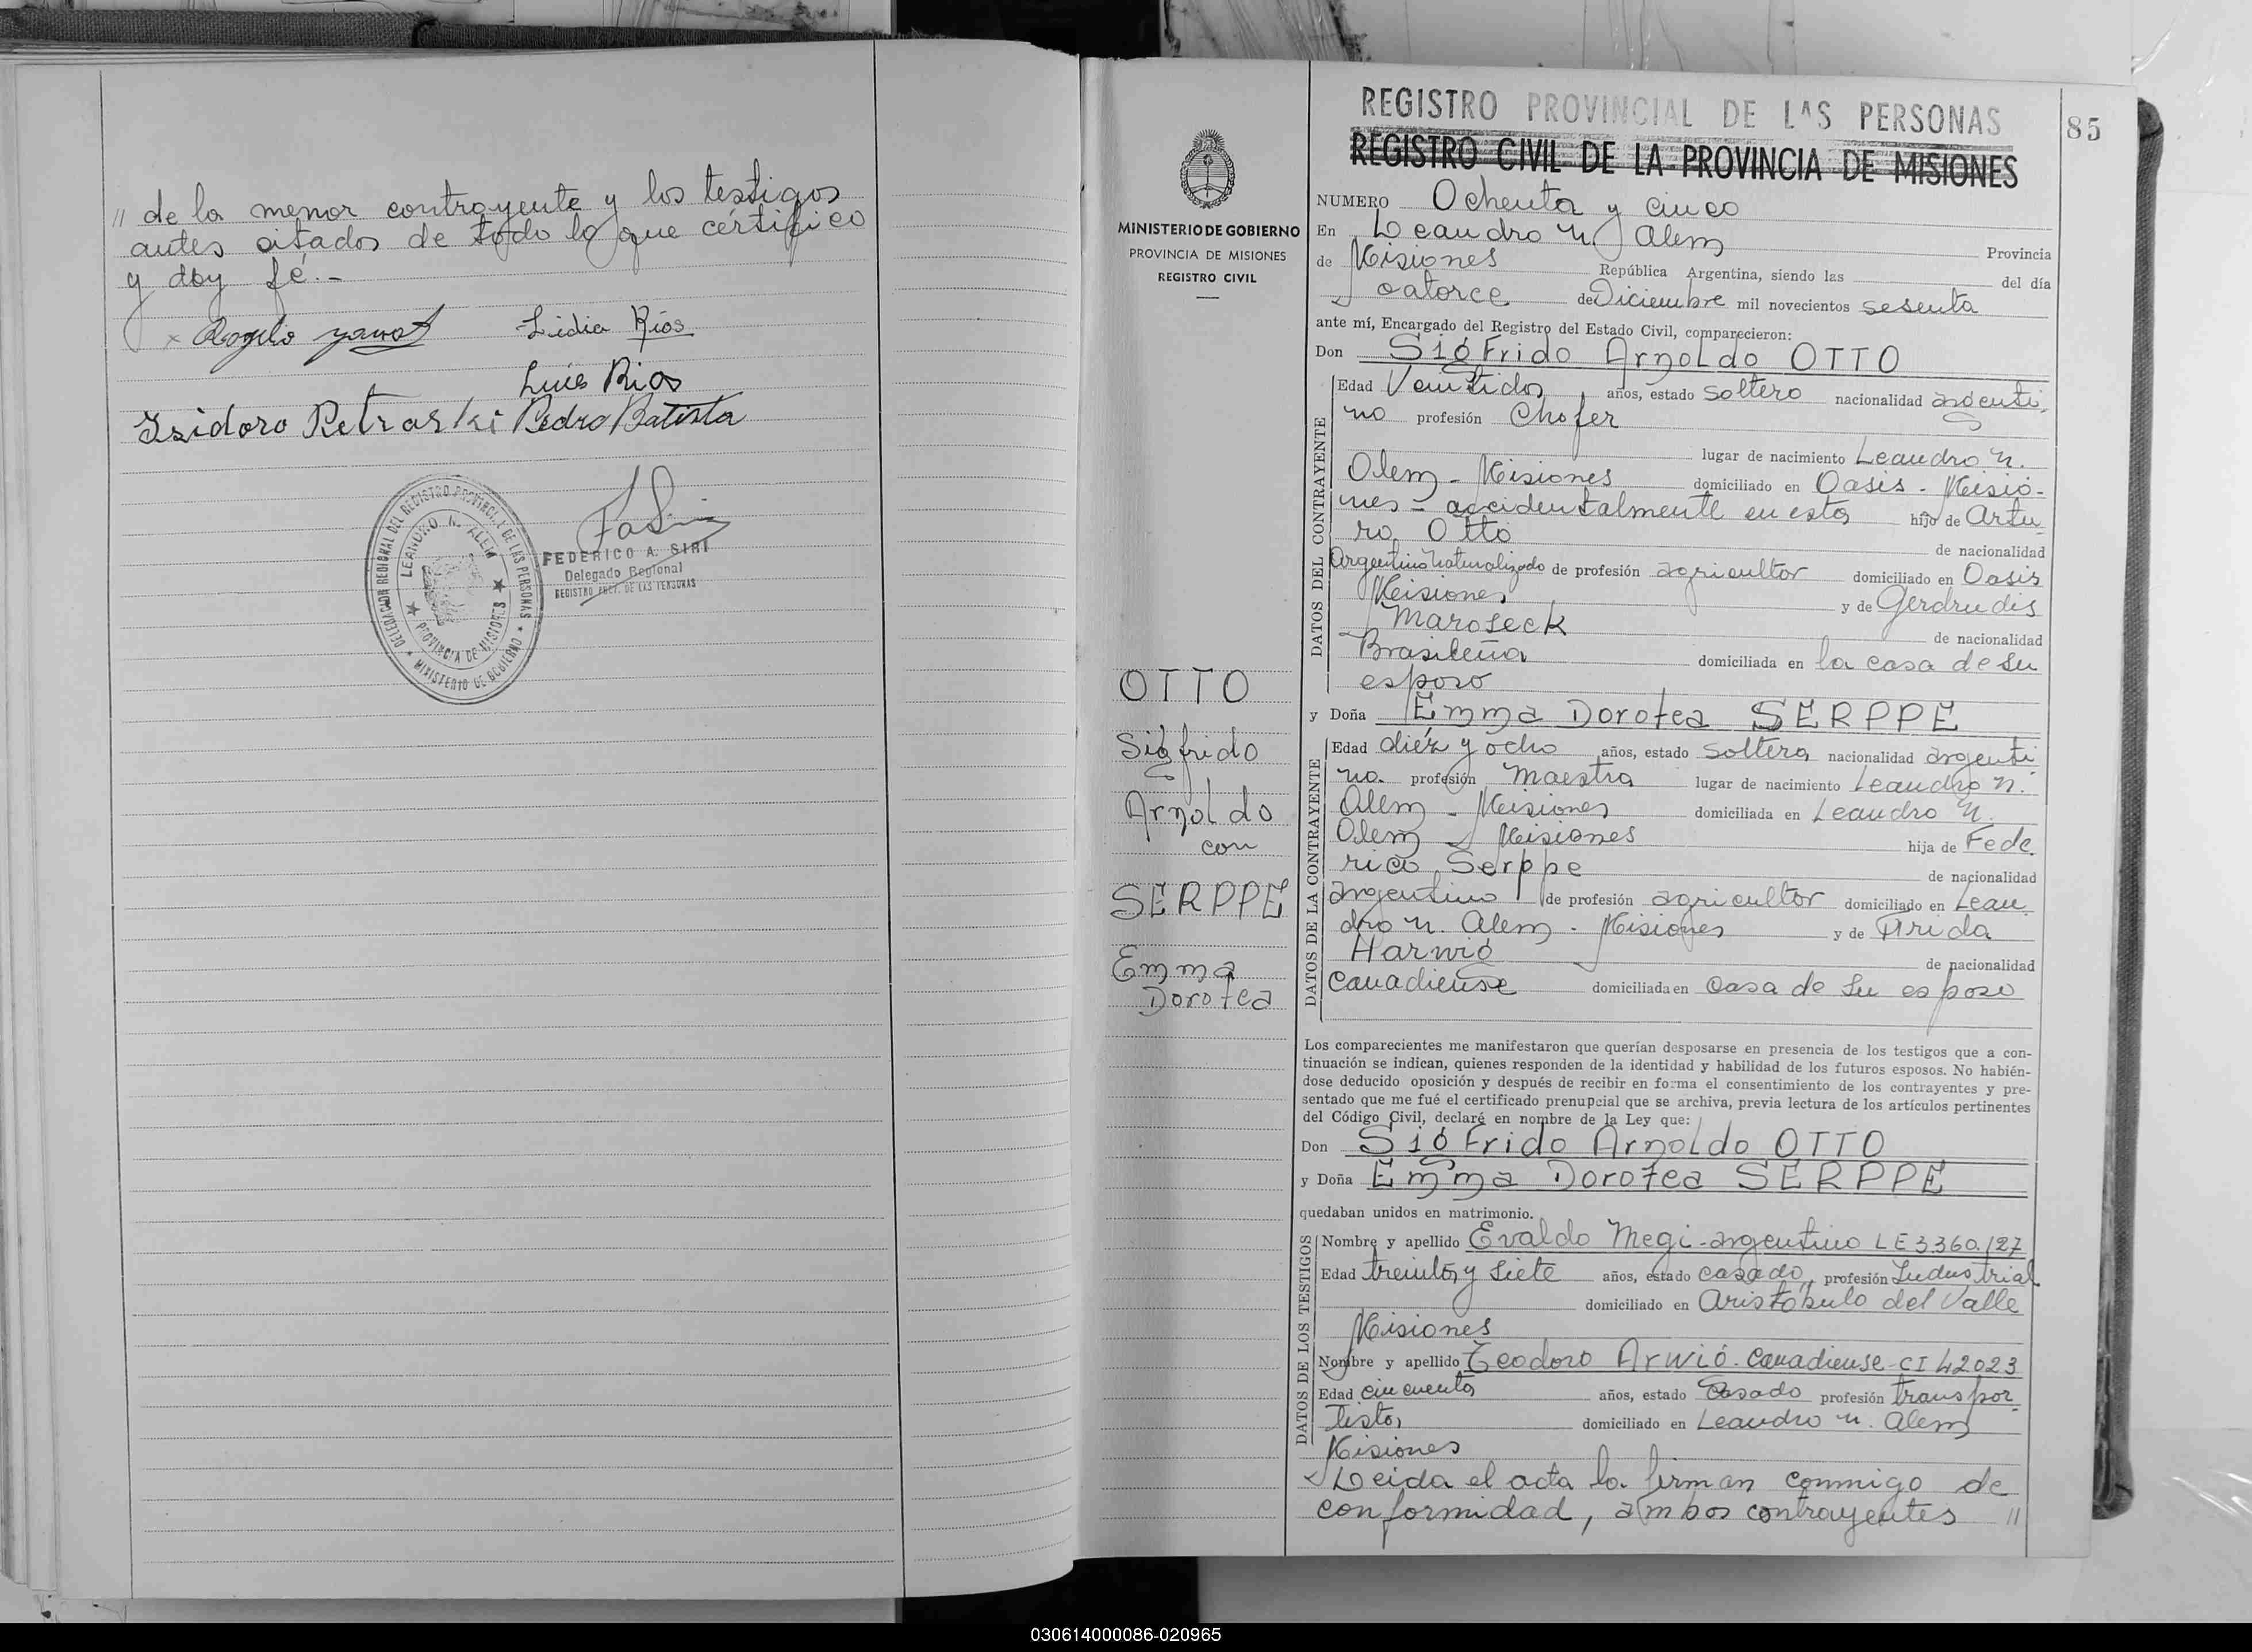 // de la menor contrayente y los testigos
antes citados de todo lo que certifico
y doy fé.-
x Rogelio
Lidia Ríos
Luis Rios
Isidoro Petraski Pedro Batista
DELEGACION REGIONAL DEL REGISTRO PROVINCIAL DE LAS PERSONAS
LEANDRO N. ALEM
PROVINCIA DE MISIONES
MINISTERIO DE GOBIERNO
FEDERICO A. SIRI
Delegado Regional
REGISTRO PROV. DE LAS PERSONAS
MINISTERIO DE GOBIERNO
PROVINCIA DE MISIONES
REGISTRO CIVIL
OTTO
Sigfrido
Arnoldo
con
SERPPE
Emma
Dorotea
REGISTRO PROVINCIAL DE LAS PERSONAS
REGISTRO CIVIL DE LA PROVINCIA DE MISIONES
85
NUMERO Ochenta y cinco
En Leandro N. Alem Provincia
de Misiones República Argentina, siendo las del día
catorce de Diciembre mil novecientos sesenta
ante mí, Encargado del Registro del Estado Civil, comparecieron:
Don Sigfrido Arnoldo OTTO
DATOS DEL CONTRAYENTE
Edad Veintidos años, estado soltero nacionalidad argenti-
no profesión Chofer
lugar de nacimiento Leandro N.
Alem - Misiones domiciliado en Oasis - Misio-
nes - accidentalmente en esta hijo de Artu
ro Otto de nacionalidad
Argentino Naturalizado de profesión agricultor domiciliado en Oasis
Misiones y de Gerdrudis
Maroseck de nacionalidad
Brasileña domiciliada en la casa de su
esposo
y Doña Emma Dorotea SERPPE
DATOS DE LA CONTRAYENTE
Edad diéz y ocho años, estado soltera nacionalidad argenti
na. profesión maestra lugar de nacimiento Leandro N.
Alem - Misiones domiciliada en Leandro N.
Alem - Misiones hija de Fede
rico Serppe de nacionalidad
argentino de profesión agricultor domiciliado en Lean
dro N. Alem - Misiones y de Frida
Harwió de nacionalidad
Canadiense domiciliada en casa de su esposo
Los comparecientes me manifestaron que querían desposarse en presencia de los testigos que a con-
tinuación se indican, quienes responden de la identidad y habilidad de los futuros esposos. No habién-
dose deducido oposición y después de recibir en forma el consentimiento de los contrayentes y pre-
sentado que me fué el certificado prenupcial que se archiva, previa lectura de los artículos pertinentes
del Código Civil, declaré en nombre de la Ley que:
Don Sigfrido Arnoldo OTTO
y Doña Emma Dorotea SERPPE
quedaban unidos en matrimonio.
DATOS DE LOS TESTIGOS
Nombre y apellido Evaldo Megi - argentino LE 3.360.127
Edad treinta y siete años, estado casado profesión Industrial
domiciliado en Aristóbulo del Valle
Misiones
Nombre y apellido Teodoro Arwió - Canadiense - CI 42.023
Edad cincuenta años, estado casado profesión transpor-
tista domiciliado en Leandro N. Alem
Misiones
Leida el acta la firman conmigo de
conformidad, ambos contrayentes //
030614000086-020965